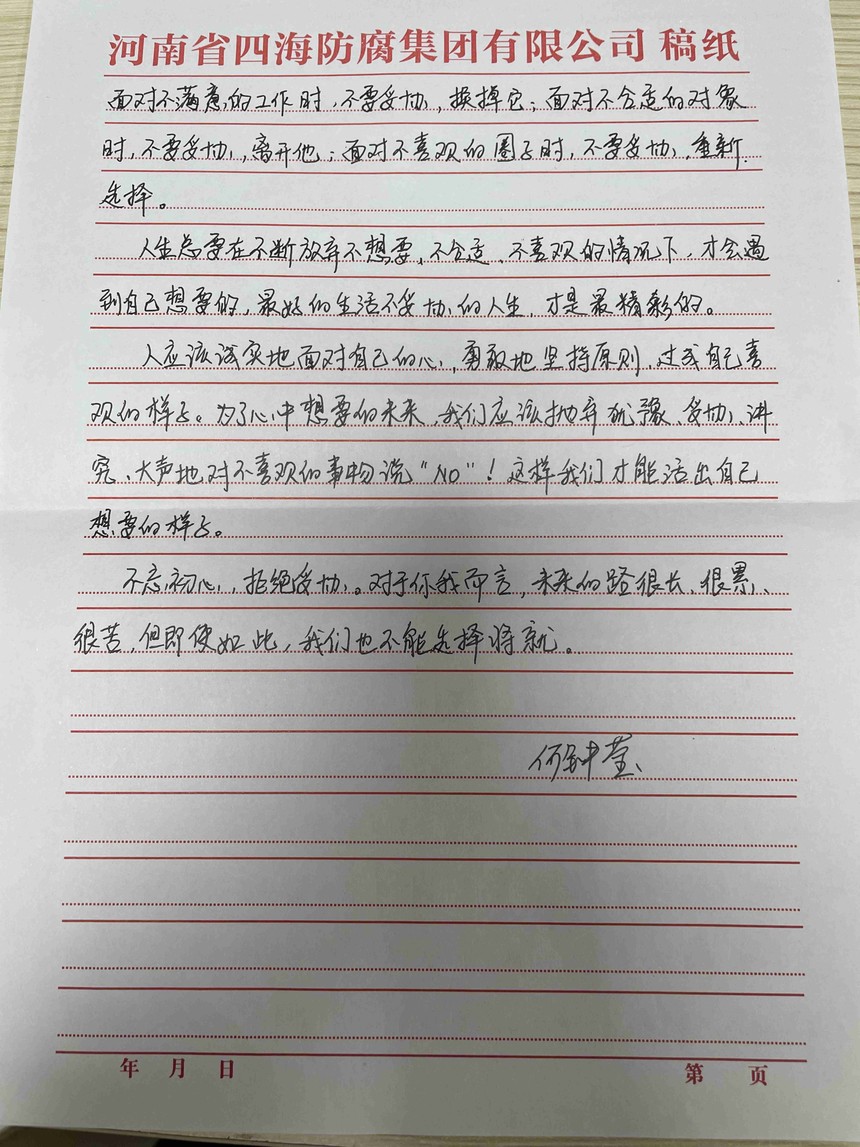 河南省四海防腐集团有限公司 稿纸
面对不满意的工作时，不要妥协，换掉它；面对不合适的对象
时，不要妥协，离开他；面对不喜欢的圈子时，不要妥协，重新
选择。
人生总要在不断放弃不想要、不合适、不喜欢的情况下，才会遇
到自己想要的，最好的生活不妥协的人生，才是最精彩的。
人应该诚实地面对自己的心，勇敢地坚持原则，过成自己喜
欢的样子。为了心中想要的未来，我们应该抛弃犹豫、妥协、讲
究、大声地对不喜欢的事物说“NO”！这样我们才能活出自己
想要的样子。
不忘初心，拒绝妥协。对于你我而言，未来的路很长、很累、
很苦，但即使如此，我们也不能选择将就。
何钟莹
年 月 日
第 页